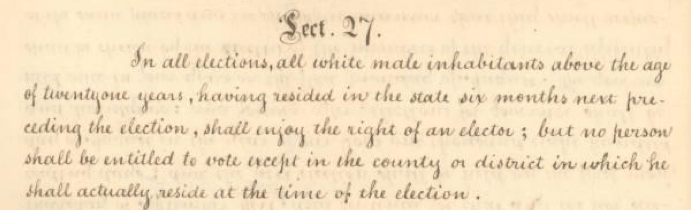 Sect. 27.
In all elections, all white male inhabitants above the age
of twentyone years, having resided in the state six months next pre-
ceding the election, shall enjoy the right of an elector; but no person
shall be entitled to vote except in the county or district in which he
shall actually reside at the time of the election.